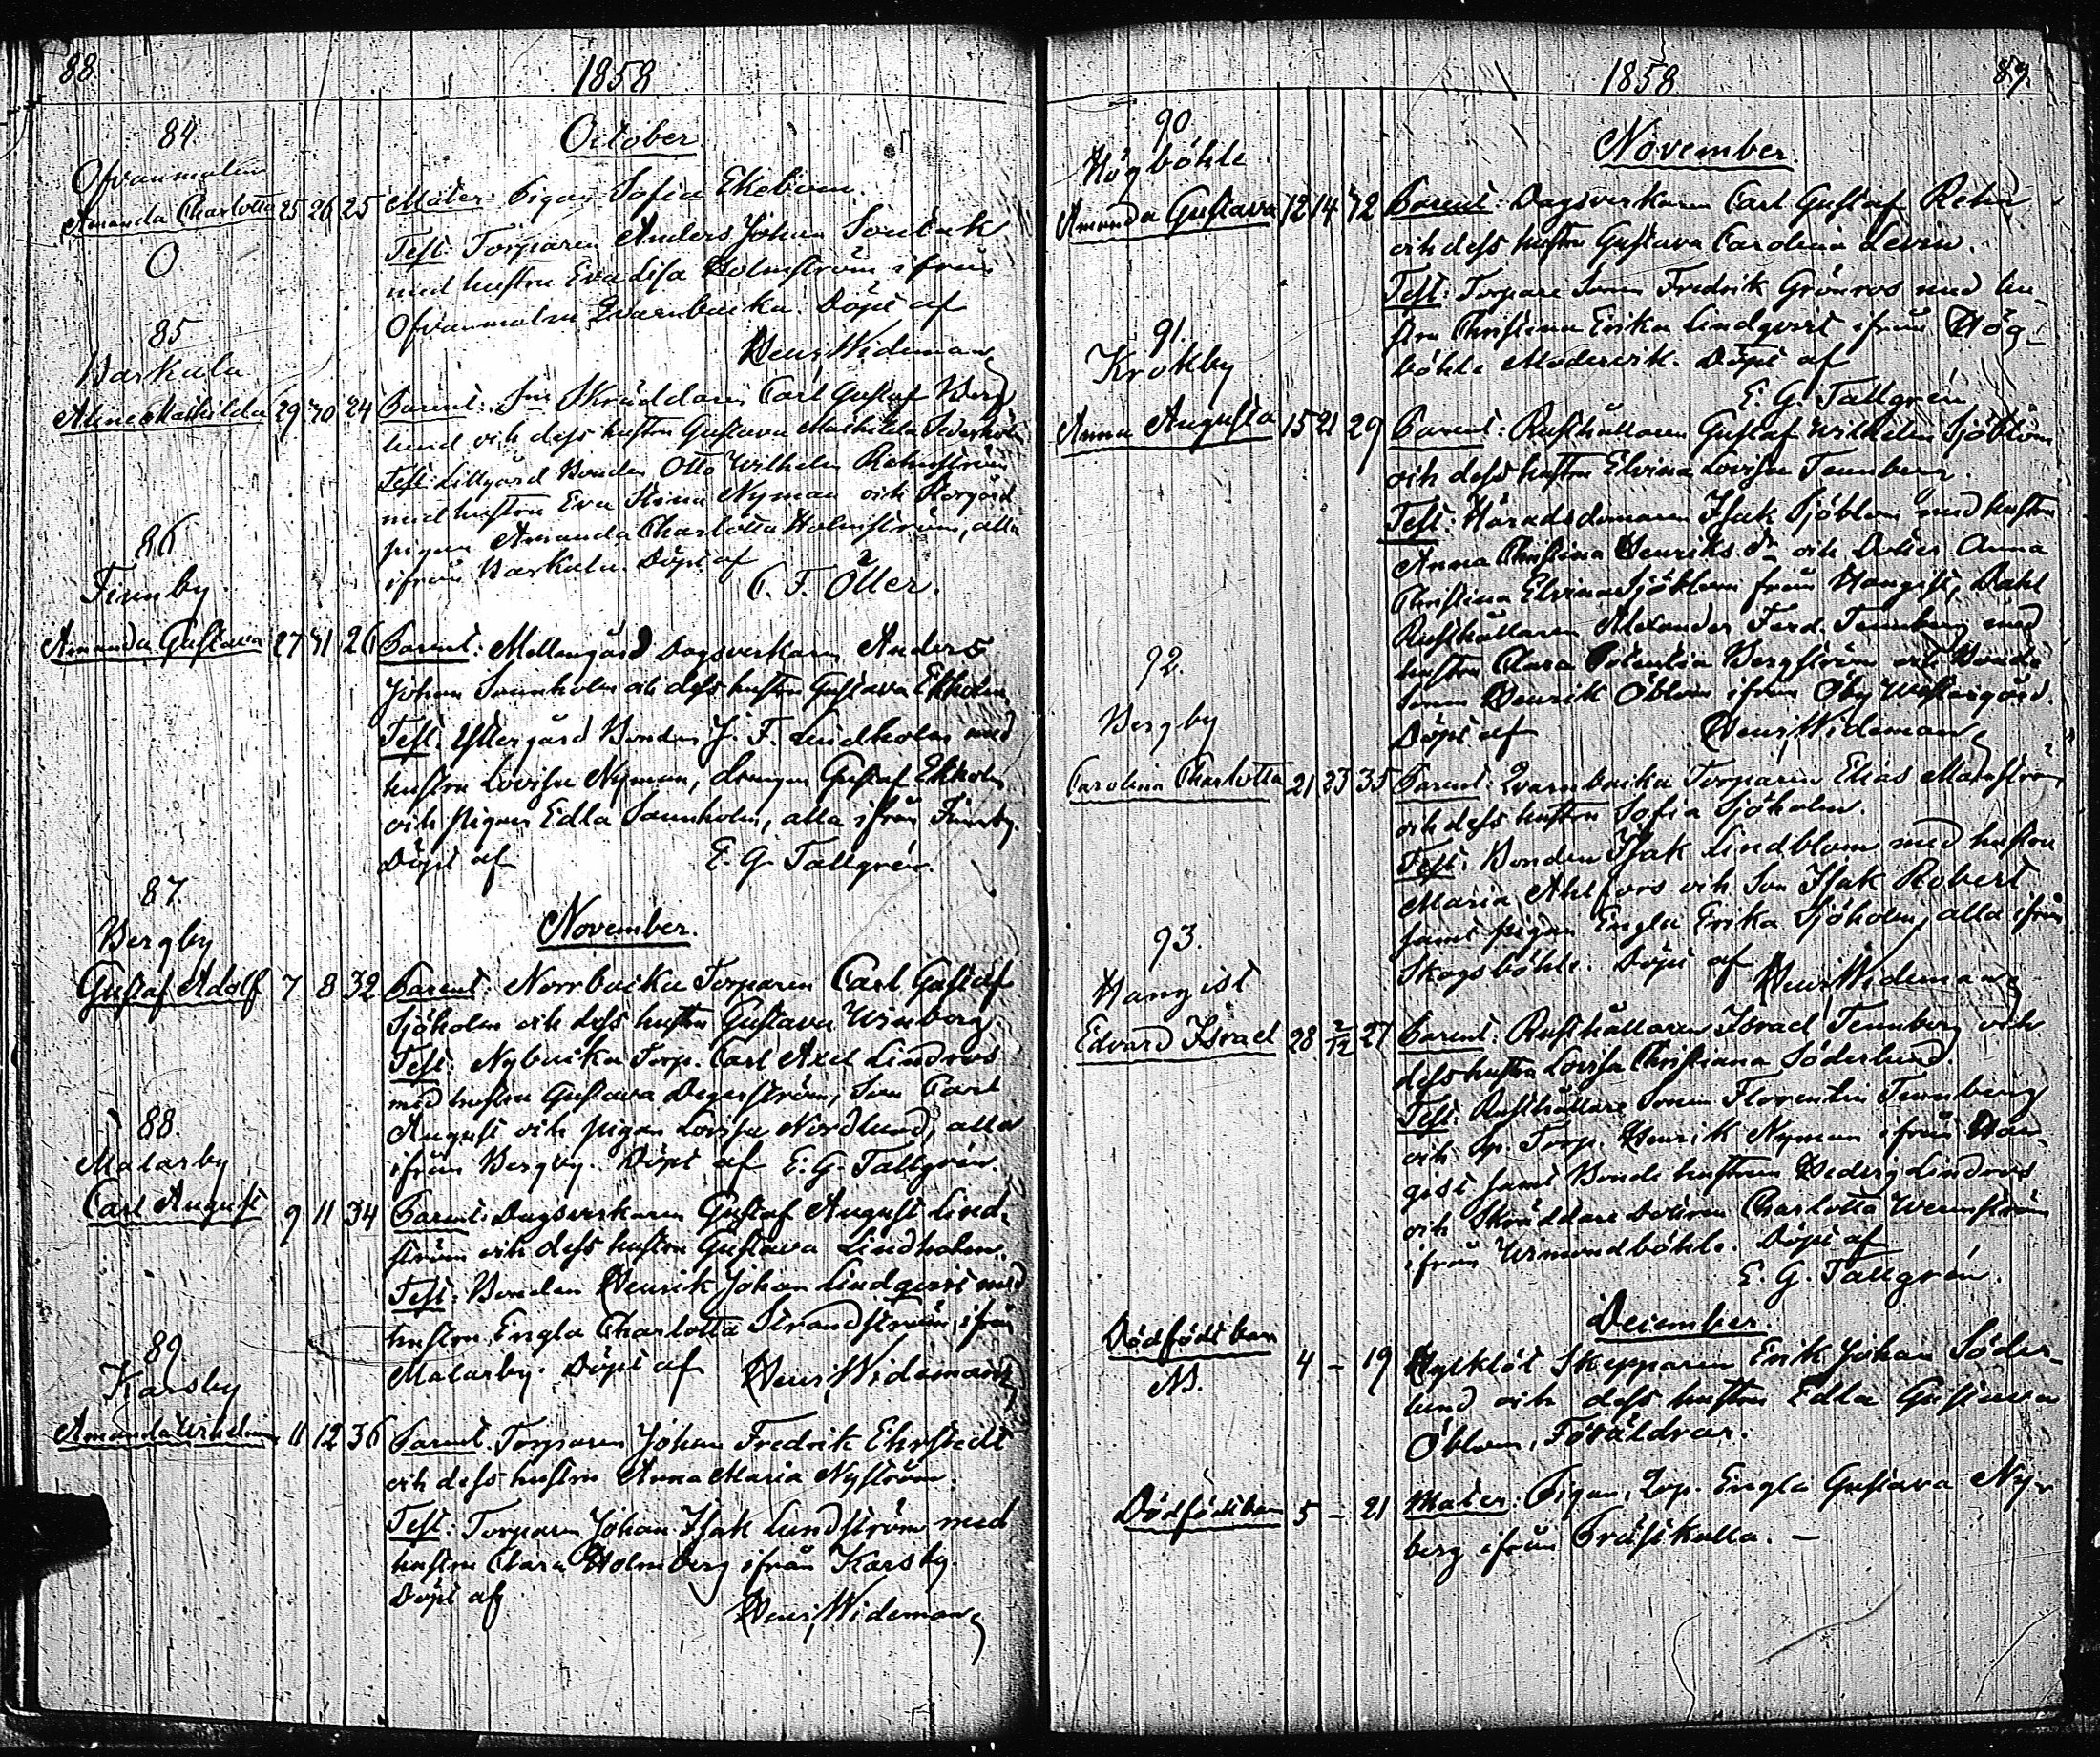 88
1858
84.
October.
Ofvanmalm
Amanda Charlotta 25 26 25 Mater: Pigan Sofia Ekebom.
O
Test: Torparen Anders Johan
med hustru Eva Lisa Holmström ifrån
Ofvanmalm Qvarnbacka. Döpt af
Henr. Wideman
85
Barkala
Aline Mathilda 29 30 24 Parent: Skräddaren Carl Gustaf Berg
lund och dess hustru Gustava Mathilda
Test: Lillgård Bonden Otto Wilhelm
med hustru Eva Stina Nyman och Storgård
pigan Amanda Charlotta Holmström, alla
ifrån Barkala. Döpt af
C. F. Öller.
86
Finnby
Amanda Gustava 27 31 26 Parent: Mellangård Dagsverkaren Anders
Johan Sannholm och dess hustru Gustava Ekholm.
Test: Yttergård Bonden J. F. Lindholm med
hustru Lovisa Nyman, drengen Gustaf Ekholm
och pigan Edla Sannholm, alla ifrån Finnby.
Döpt af E. G. Tallgrén.
November.
87.
Bergby
Gustaf Adolf 7 8 32 Parent: Norrbacka Torparen Carl Gustaf
Sjöholm och dess hustru Gustava Winberg.
Test: Nybacka Torp. Carl Axel Lindroos
med hustru Gustava Degerström, Son Carl
August och pigan Lovisa Nordlund, alla
ifrån Bergby. Döpt af E. G. Tallgrén.
88.
Malarby
Carl August 9 11 34 Parent: Dagsverkaren Gustaf August Lind-
ström och dess hustru Gustava Lindholm.
Test: Bonden Henrik Johan Lindqvist med
hustru Engla Charlotta Strandström, ifrån
Malarby. Döpt af Henr. Wideman
89.
Karsby
Amanda Wilhelmina 11 12 36 Parent: Torparen Johan Fredrik Ehrstedt
och dess hustru Anna Maria Nyström.
Test: Torparen Johan Isak Lundström med
hustru Clara Holmberg ifrån Karsby.
Döpt af
Henr. Wideman
1858
89.
90.
November.
Högböhle
Amanda Gustava 12 14 42 Parent: Dagsverkaren Carl Gustaf
och dess hustru Gustava Carolina Levin.
Test: Torpare Sonen Fredrik Grönroos med hu-
stru Christina Erika Lindqvist ifrån Hög-
böhle Modervik. Döpt af
E. G. Tallgrén
91.
Krokby
Anna Augusta 15 21 29 Parent: Rusthållaren Gustaf Wilhelm Sjöblom
och dess hustru Elvina Lovisa Tennberg.
Test: Häradsdomaren Isak Sjöblom med hustru
Anna Christina Henriks dr och Dotter Anna
Christina Elvina Sjöblom från Hangist, Dahl
Rusthållaren Alexander Ferd. Tennberg med
hustru Clara Potentia Bergström och Bonde
sonen Henrik Öblom ifrån Öby Westergård.
Döpt af Henr. Wideman
92.
Bergby
Carolina Charlotta 21 23 35 Parent: Qvarnbacka Torparen Elias Malmström
och dess hustru Sofia Sjöholm.
Test: Bonden Isak Lindblom med hustru
Maria Ahlfors och Son Isak Robert
samt pigan Engla Erika Sjöholm, alla ifrån
Skogsböhle. Döpt af Henr. Wideman
93.
Hangist
Edvard Israel 28 2/12 27 Parent: Rusthållaren Israel Tennberg och
dess hustru Lovisa Christiana Söderlund.
Test: Rusthållare Sonen Florentin Tennberg
och Sp. Torp. Henrik Nyman ifrån Han-
gist samt Bonde hustrun Hedvig Lindroos
och Skräddare Dottren Charlotta Wennström
ifrån Wimondböhle. Döpt af
E. G. Tallgrén.
December.
Dödfödt barn 4 - 19 Skepparen Erik Johan Söder-
M.
lund och dess hustru Edla Gustava
Öblom, Föräldrar.
Dödfödt barn 5 - 21 Mater: Pigan, Inp. Engla Gustava Ny-
berg ifrån Prästkulla. -